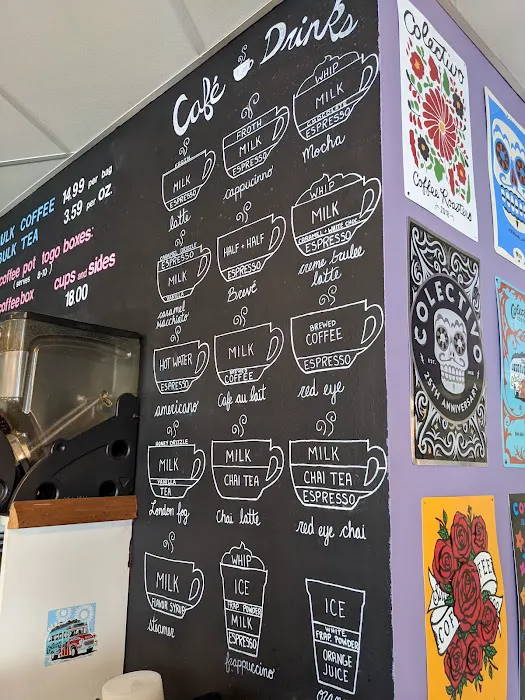 Café Drinks
BULK COFFEE 14.99 per bag
BULK TEA 3.59 per oz.
coffee pot togo boxes:
(serves 8-10)
coffee box cups and sides
18.00
FROTH
MILK
ESPRESSO
latte
FROTH
MILK
ESPRESSO
cappucinno
WHIP
MILK
CHOCOLATE
ESPRESSO
Mocha
CARAMEL DRIZZLE
ESPRESSO
MILK
VANILLA
caramel
macchiato
HALF + HALF
ESPRESSO
Brevé
WHIP
MILK
CARAMEL + WHITE CHOC
ESPRESSO
creme brulee
latte
HOT WATER
ESPRESSO
americano
MILK
BREWED
COFFEE
Cafe au lait
BREWED
COFFEE
ESPRESSO
red eye
HONEY DRIZZLE
MILK
VANILLA
TEA
London fog
MILK
CHAI TEA
Chai latte
MILK
CHAI TEA
ESPRESSO
red eye chai
MILK
FLAVOR SYRUP
steamer
WHIP
ICE
FRAP. POWDER
MILK
ESPRESSO
frappuccino
ICE
WHITE
FRAP. POWDER
ORANGE
JUICE
Colectivo
Coffee Roasters
COLECTIVO
25TH ANNIVERSARY